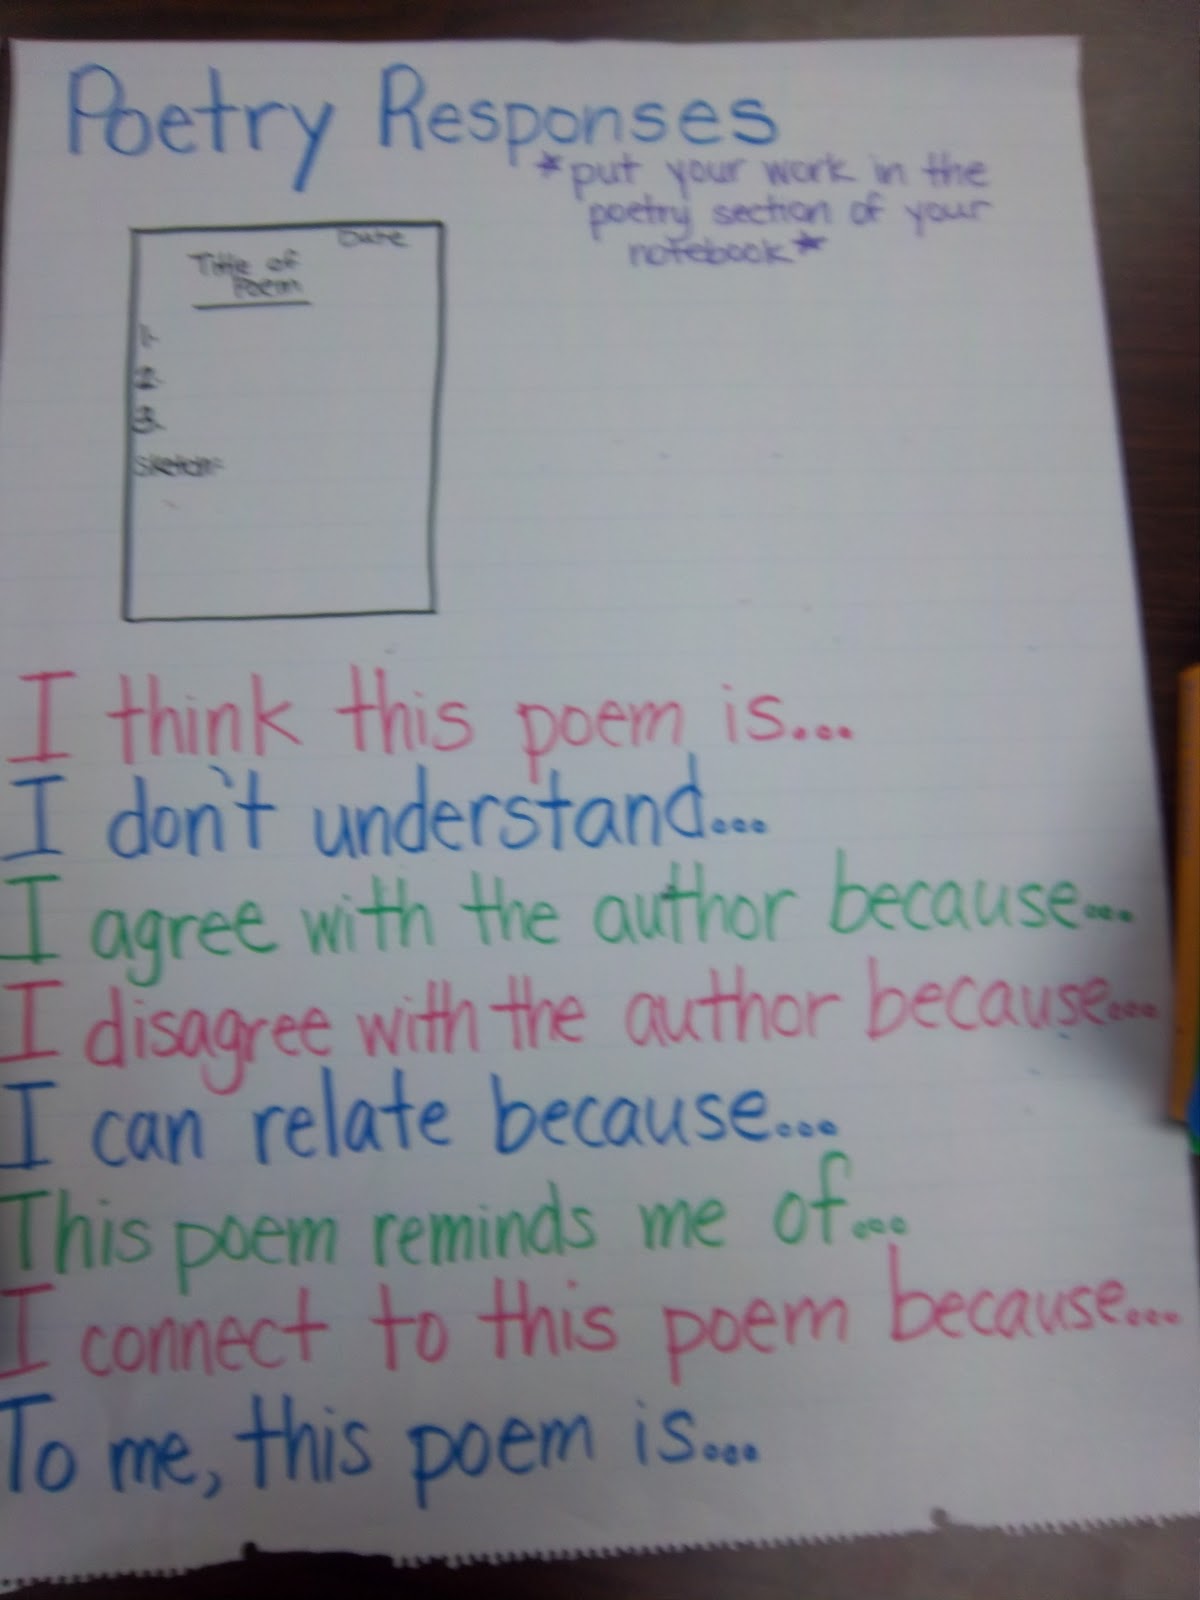 Poetry Responses
*put your work in the
poetry section of your
notebook*
Date
Title of
Poem
1.
2.
3.
Sketch:
I think this poem is...
I don't understand...
I agree with the author because...
I disagree with the author because...
I can relate because...
This poem reminds me of...
I connect to this poem because...
To me, this poem is...